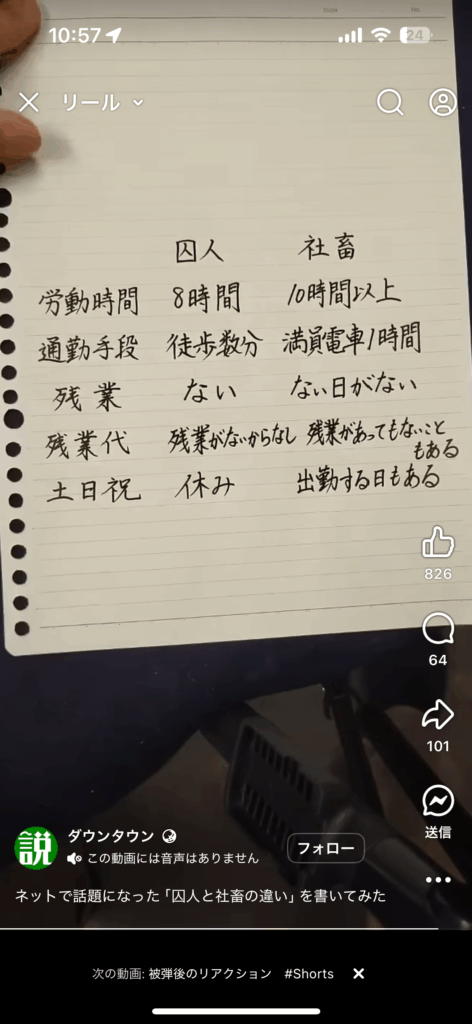 10:57
24
リール
囚人 社畜
労働時間 8時間 10時間以上
通勤手段 徒歩数分 満員電車1時間
残業 ない ない日がない
残業代 残業がないからなし 残業があってもないこと
もある
土日祝 休み 出勤する日もある
826
64
101
送信
説
ダウンタウン
この動画には音声はありません
フォロー
ネットで話題になった「囚人と社畜の違い」を書いてみた
次の動画: 被弾後のリアクション #Shorts